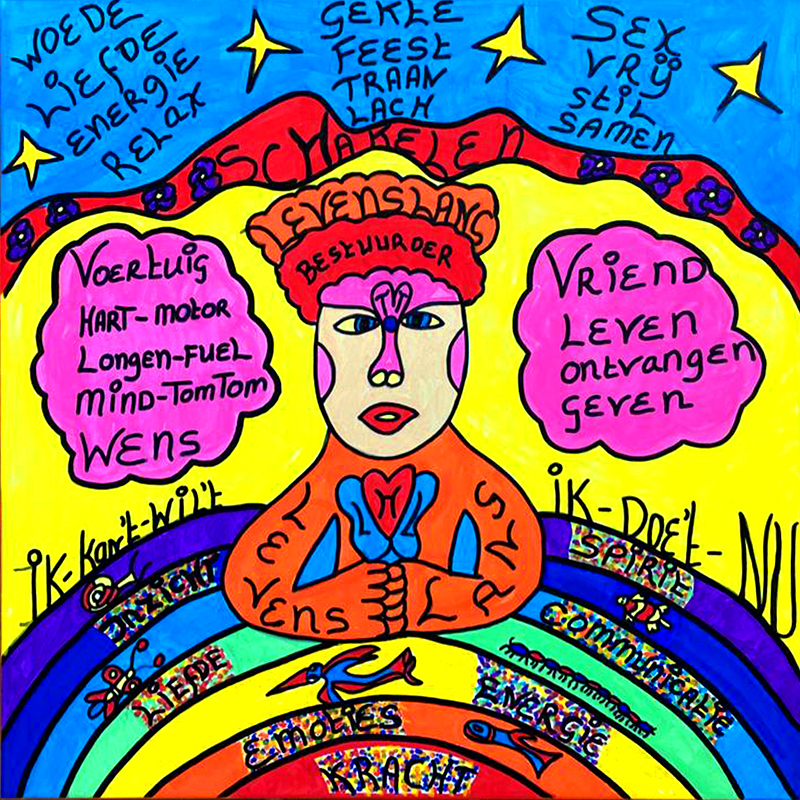 WOEDE
LIEFDE
ENERGIE
RELAX
GEKTE
FEEST
TRAAN
LACH
SEX
VRIJ
STIL
SAMEN
SCHAKELEN
LEVENSLANG
BESTUURDER
VOERTUIG
HART-MOTOR
LONGEN-FUEL
MIND-TOMTOM
WENS
VRIEND
LEVEN
ONTVANGEN
GEVEN
IK-KAN'T-WIL'T
IK-DOE'T-NU
H
LEVENS
PAD
INZICHT
SPIRIT
LIEFDE
COMMUNICATIE
EMOTIES
ENERGIE
KRACHT